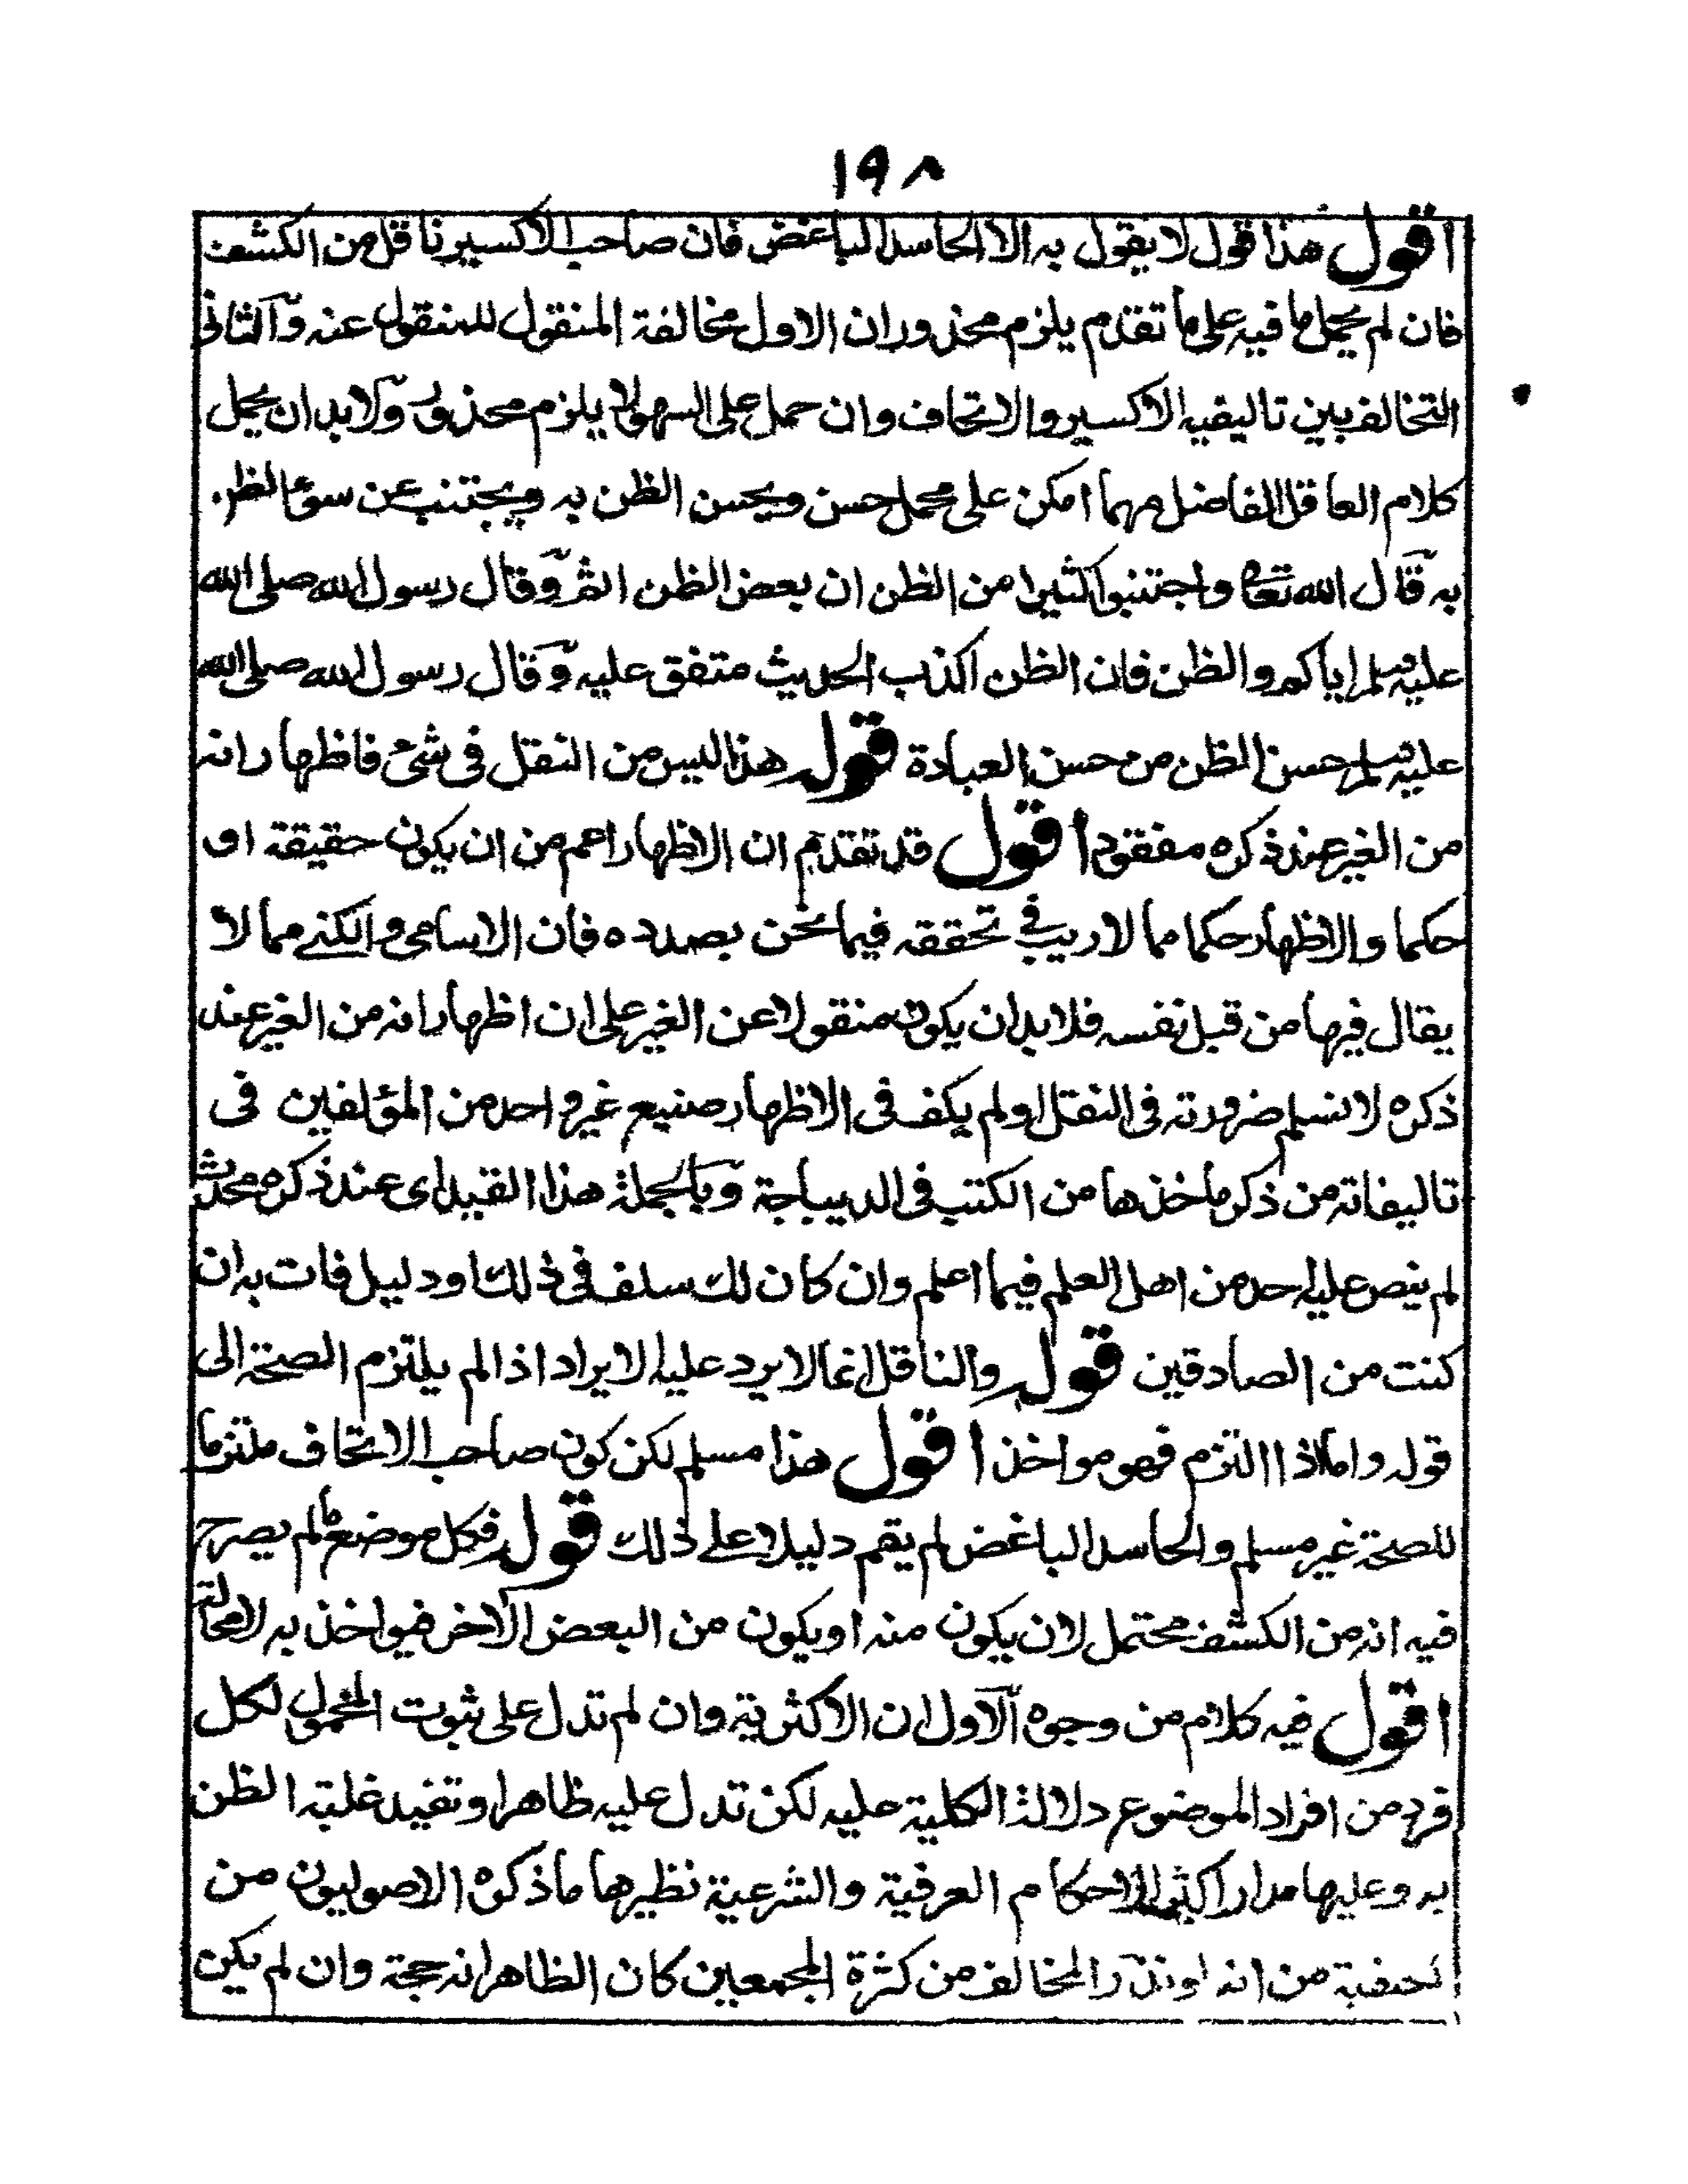 ١٩٨
اقول هذا قول لا يقول به الا الحاسد الباغض فان صاحب الاكسير ناقل من الكشف
فان لم يحمل ما فيه على ما تقدم يلزم محذوران الاول مخالفة المنقول للمنقول عنه والثانى
التخالف بين تاليفيه الاكسير والاتحاف وان حمل على السهو لا يلزم محذور ولابد ان يحمل
كلام العاقل الفاضل مهما امكن على محمل حسن ويحسن الظن به ويجتنب عن سوء الظن
به قال الله تعالى واجتنبوا كثيرا من الظن ان بعض الظن اثم وقال رسول الله صلى الله
عليه وسلم اياكم والظن فان الظن اكذب الحديث متفق عليه وقال رسول الله صلى الله
عليه وسلم حسن الظن من حسن العبادة قوله هذا ليس من النقل فى شئ فاظهار انه
من الغير عند ذكره مفقود اقول قد تقدم ان الاظهار اعم من ان يكون حقيقة او
حكما والاظهار حكما مما لا ريب فى تحققه فيما نحن بصدده فان الاسامى والكنى مما لا
يقال فيها من قبل نفسه فلابد ان يكون منقولا عن الغير على ان اظهار انه من الغير عند
ذكره لا نسلم ضرورته فى النقل اولم يكف فى الاظهار صنيع غير واحد من المؤلفين فى
تاليفاته من ذكر ماخذها من الكتب فى الديباجة وبالجملة هذا القيد اى عند ذكره محدث
لم ينص عليه احد من اهل العلم فيما اعلم وان كان لك سلف فى ذلك او دليل فات به ان
كنت من الصادقين قوله والناقل انما لا يرد عليه الايراد اذا لم يلتزم الصحة الى
قوله واما اذا التزم فهو مواخذ اقول هذا مسلم لكن كون صاحب الاتحاف ملتزما
للصحة غير مسلم والحاسد الباغض لم يقم دليلا على ذلك قوله فكل موضع لم يصرح
فيه انه من الكشف محتمل لان يكون منه او يكون من البعض الآخر فيواخذ به لا محالة
اقول فيه كلام من وجوه الاول ان الاكثرية وان لم تدل على ثبوت المحمول لكل
فرد من افراد الموضوع دلالة الكلية عليه لكن تدل عليه ظاهرا وتفيد غلبة الظن
به وعليها مدار اكثر الاحكام العرفية والشرعية نظيرها ما ذكره الاصوليون من
الحنفية من انه لو ندر المخالف من كثرة المجمعين كان الظاهر انه حجة وان لم يكن